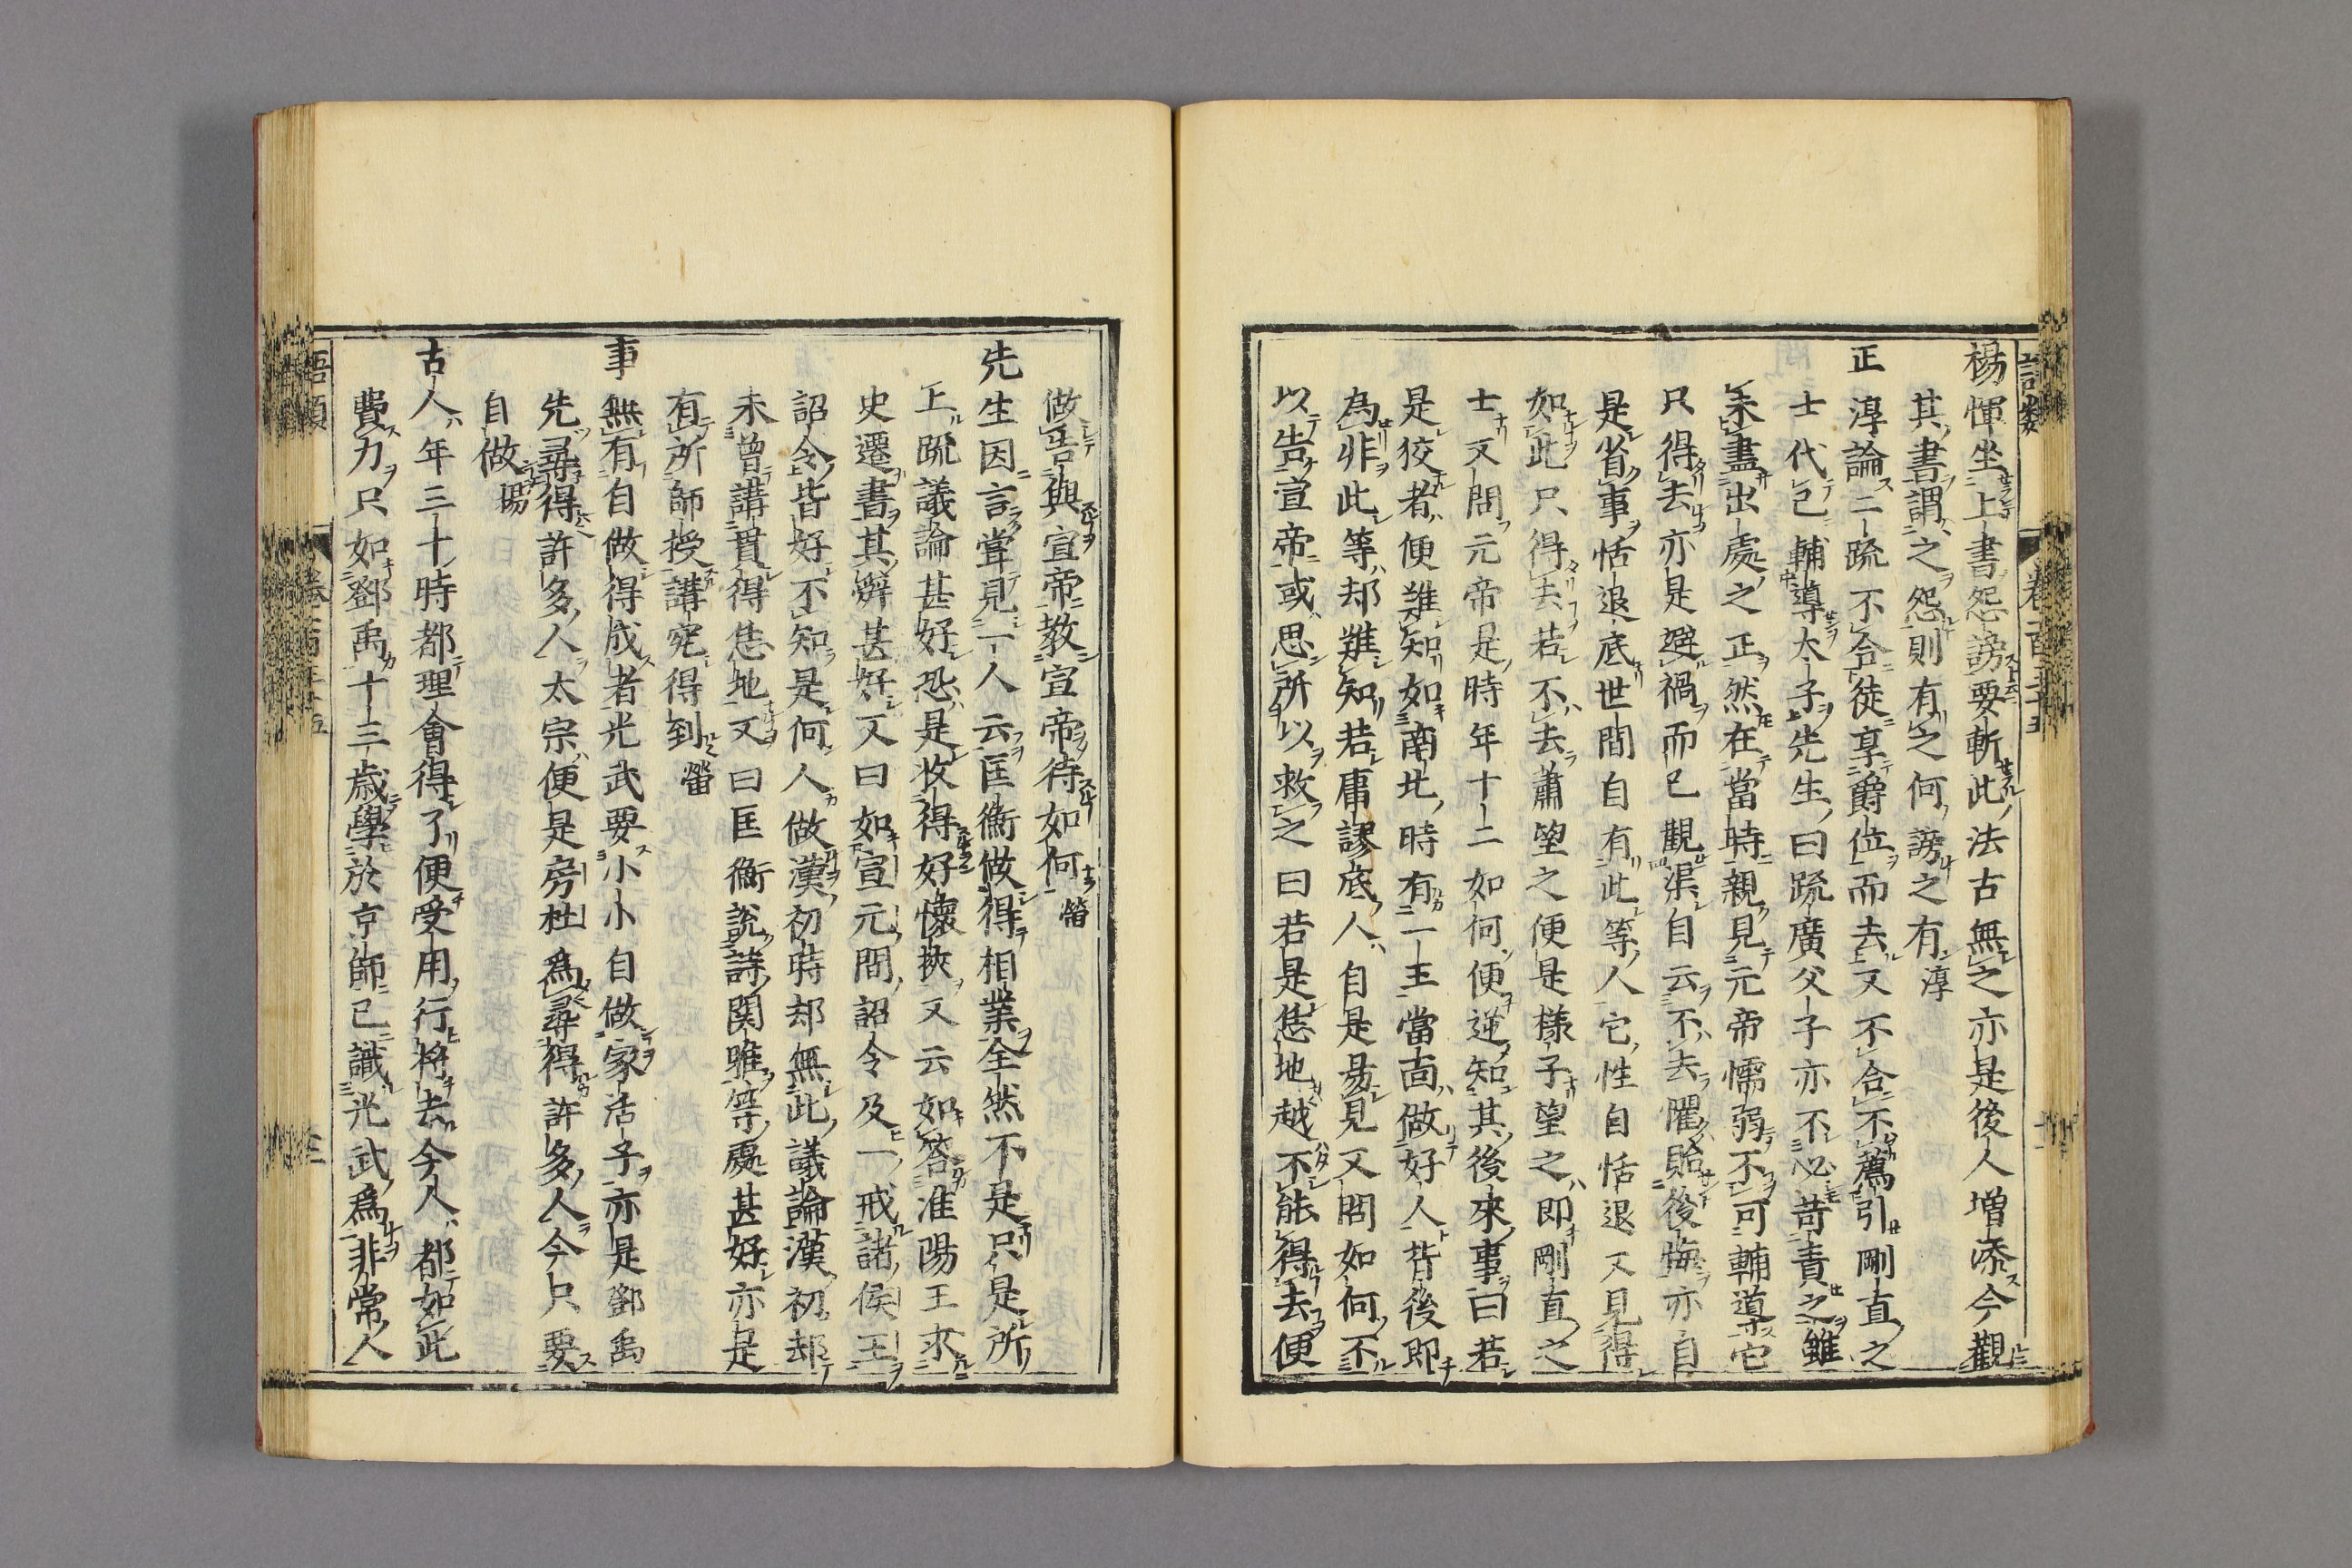 楊惲坐上書怨謗要斬此法古無之亦是後人增添今觀
其書謂之怨則有之何謗之有 淳
正淳論二疏不合徒享爵位而去又不合不薦引剛直之
士代己輔導太子先生曰疏廣父子亦不必苛責之雖
未盡出處之正然在當時親見元帝懦弱不可輔導它
只得去亦是避禍而已觀渠自云不去懼貽後悔亦自
是省事恬退底世間自有此等人它性自恬退又見得
如此只得去若不去蕭望之便是樣子望之即剛直之
士又問元帝是時年十二如何便逆知其後來事曰若
是狡者便難知如南北時有一王當面做好人背後即
為非此等却難知若庸謬底人自是易見又問如何不
以告宣帝或思所以救之曰若是恁地越不能得去便
做告與宣帝教宣帝待如何 㽦
先生因言嘗見一人云匡衡做得相業全然不是只是所
上疏議論甚好恐是收得好懷挾又云如答淮陽王求
史遷書其辭甚好又曰如宣元間詔令及一戒諸侯王
詔令皆好不知是何人做漢初時却無此議論漢初却
未曾講貫得恁地又曰匡衡說詩關雎等處甚好亦是
有所師授講究得到 㽦
事無有自做得成者光武要小小自做家活子亦是鄧禹
先尋得許多人太宗便是房杜為尋得許多人今只要
自做 揚
古人年三十時都理會得了便受用行將去今人都如此
費力只如鄧禹十三歲學於京師已識光武為非常人
語類 卷一百三十五